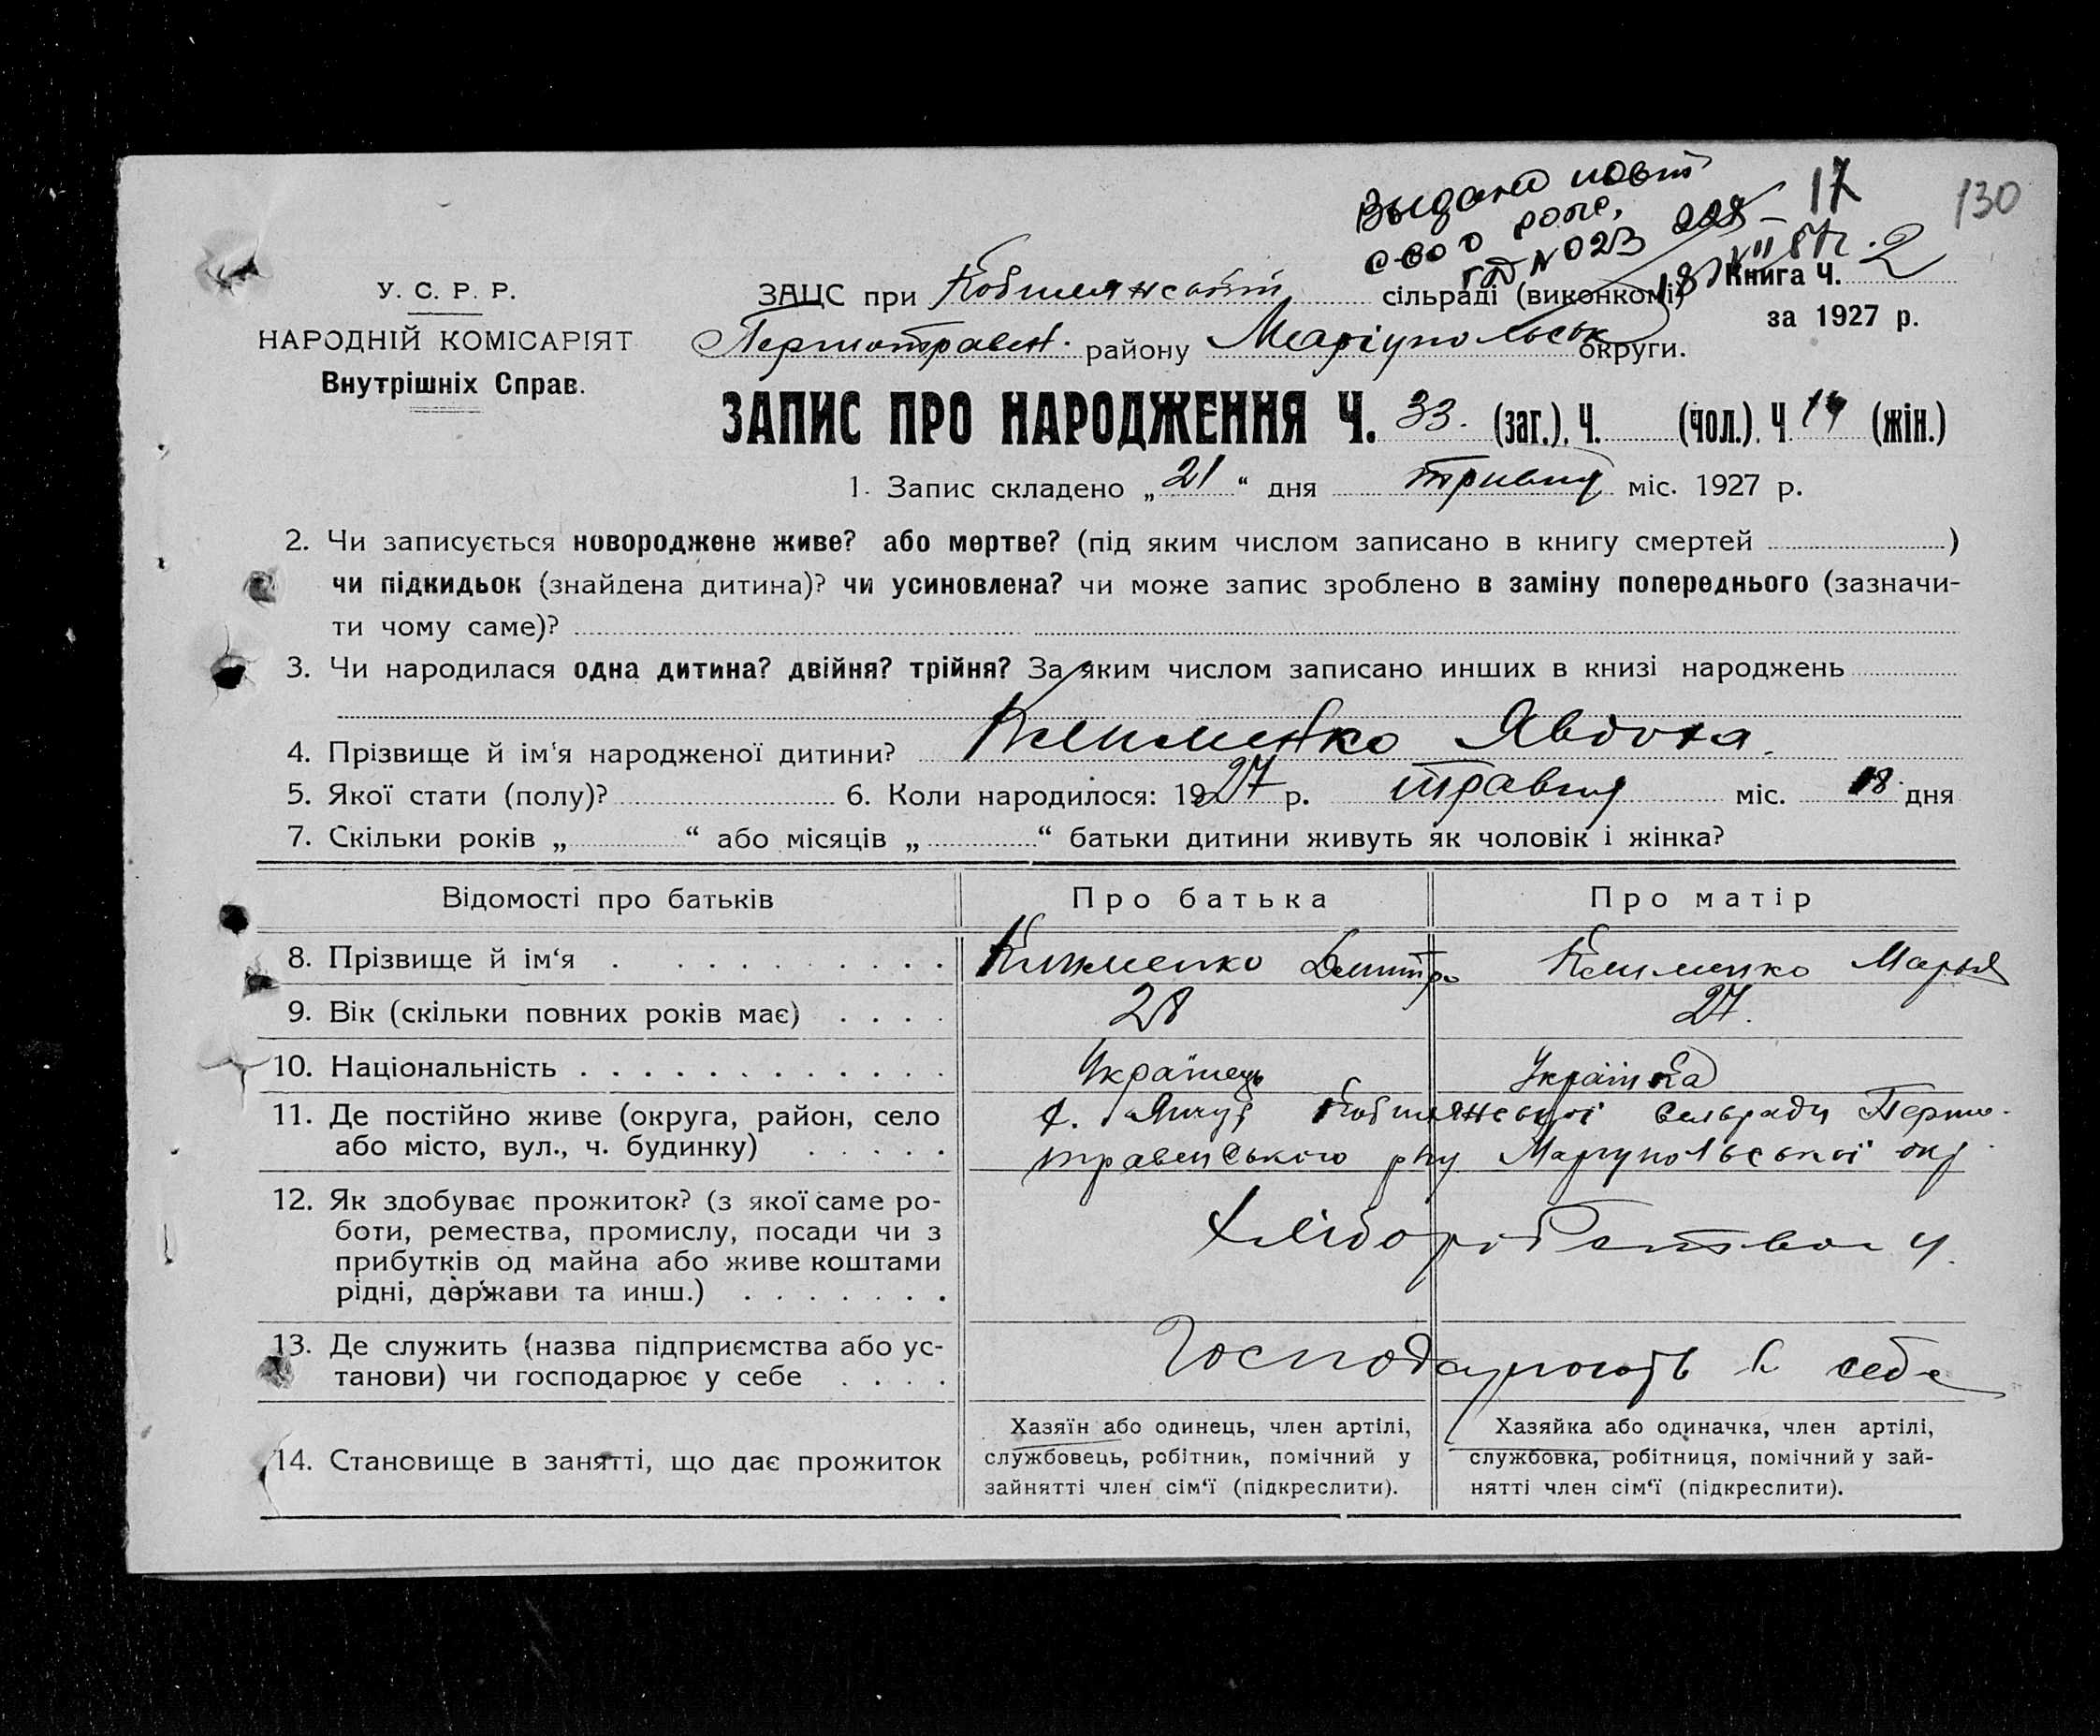 Выдано повт
17
130
У. С. Р. Р.
ЗАЦС при сільраді (виконкомі)
Книга Ч. 2
НАРОДНІЙ КОМІСАРІЯТ
за 1927 р.
району Маріупольськ округи.
Внутрішніх Справ.
ЗАПИС ПРО НАРОДЖЕННЯ Ч. 33. (заг.). Ч. (чол.). Ч 14 (жін.)
1. Запис складено „ 21 “ дня травня міс. 1927 р.
2. Чи записується новороджене живе? або мертве? (під яким числом записано в книгу смертей )
чи підкидьок (знайдена дитина)? чи усиновлена? чи може запис зроблено в заміну попереднього (зазначи-
ти чому саме)?
3. Чи народилася одна дитина? двійня? трійня? За яким числом записано инших в книзі народжень
4. Прізвище й ім'я народженої дитини? Клименко Явдоха.
5. Якої стати (полу)? 6. Коли народилося: 1927 р. травня міс. 18 дня
7. Скільки років „ “ або місяців „ “ батьки дитини живуть як чоловік і жінка?
Відомості про батьків Про батька Про матір
8. Прізвище й ім‘я Клименко Дмитро Клименко Марья
9. Вік (скільки повних років має) 28 27.
10. Національність Українець Українка
11. Де постійно живе (округа, район, село с. Ялту Сельради Першо-
або місто, вул., ч. будинку) травенського р-ну Маріупольської окр
12. Як здобуває прожиток? (з якої саме ро-
боти, ремества, промислу, посади чи з Хліборобством
прибутків од майна або живе коштами
рідні, держави та инш.)
13. Де служить (назва підприємства або ус- Господарюють в себе
танови) чи господарює у себе
14. Становище в занятті, що дає прожиток
Хазяїн або одинець, член артілі,
службовець, робітник, помічний у
зайнятті член сім‘ї (підкреслити).
Хазяйка або одиначка, член артілі,
службовка, робітниця, помічний у зай-
нятті член сім‘ї (підкреслити).